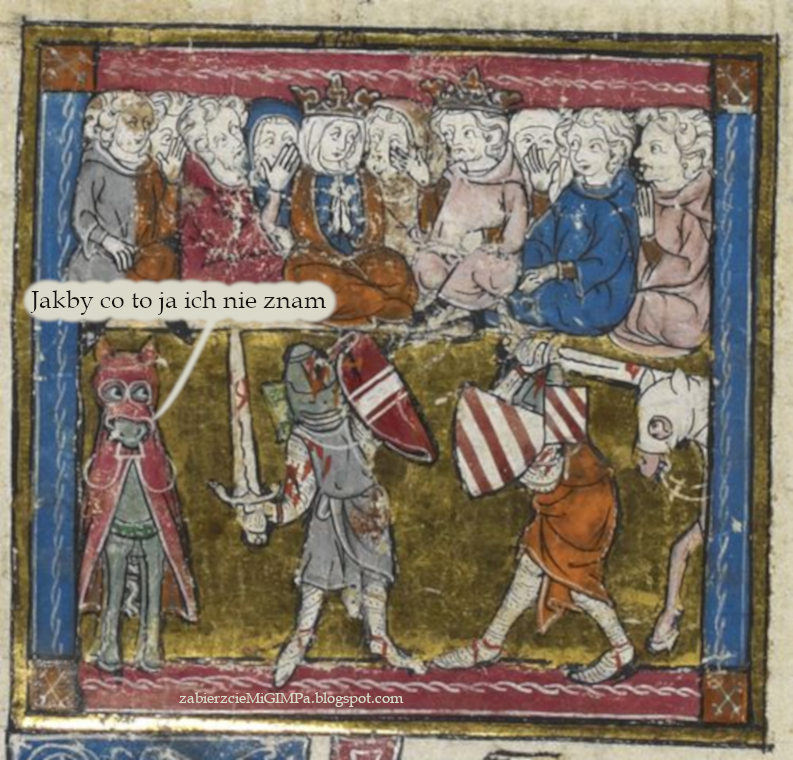 Jakby co to ja ich nie znam
zabierzcieMiGIMPa.blogspot.com